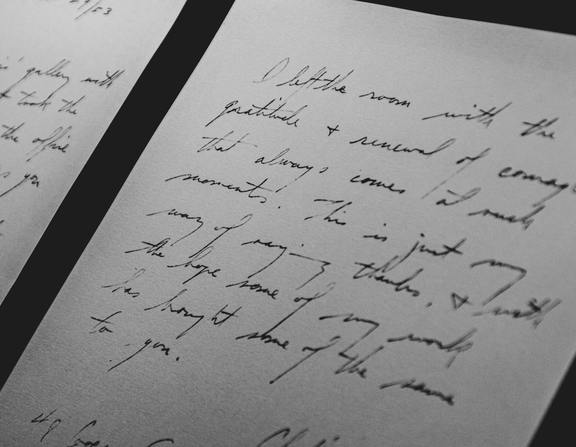 /53
gallery with
took the
the office
you
I left the room with the
gratitude & renewal of courage
that always comes at such
moments. This is just my
way of saying thanks, & with
the hope some of my work
has brought some of the same
to you.
49